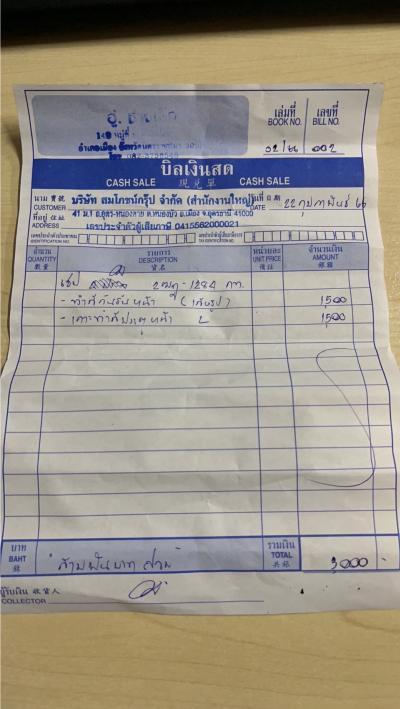 อู่
149 หมู่ที่
อำเภอเมือง
โทร.
เล่มที่ เลขที่
BOOK NO. BILL NO.
02/66 002
บิลเงินสด
CASH SALE 現兌單 CASH SALE
นาม บริษัท สมโภชน์กรุ๊ป จำกัด (สำนักงานใหญ่) วันที่
CUSTOMER DATE 22 กุมภาพันธ์ 66
ที่อยู่ 41 ม.1 ถ.อุดร-หนองคาย ต.หนองบัว อ.เมือง จ.อุดรธานี 41000
ADDRESS เลขประจำตัวผู้เสียภาษี 0415562000021
เลขประจำตัวประชาชน เลขประจำตัวผู้เสียภาษีอากร
IDENTIFICATION NO. TAX IDENTIFICATION NO.
จำนวน รายการ หน่วยละ จำนวนเงิน
QUANTITY DESCRIPTION UNIT PRICE AMOUNT
數量 貨名 價註 銀額
1284 กท.
- ทำสีกันชนหน้า 1,500
- เคาะทำสีประตูหน้า L 1,500
บาท รวมเงิน
BAHT "สามพันบาทถ้วน" TOTAL 3,000
銖 共銀
ผู้รับเงิน 收貨人
COLLECTOR